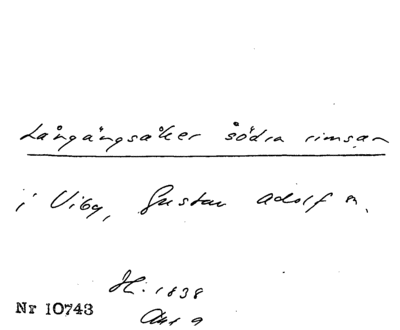 Långångsåker södra rimsan
i Viby, Gustav Adolf s.
H: 1838
Nr 10743
Akt 9